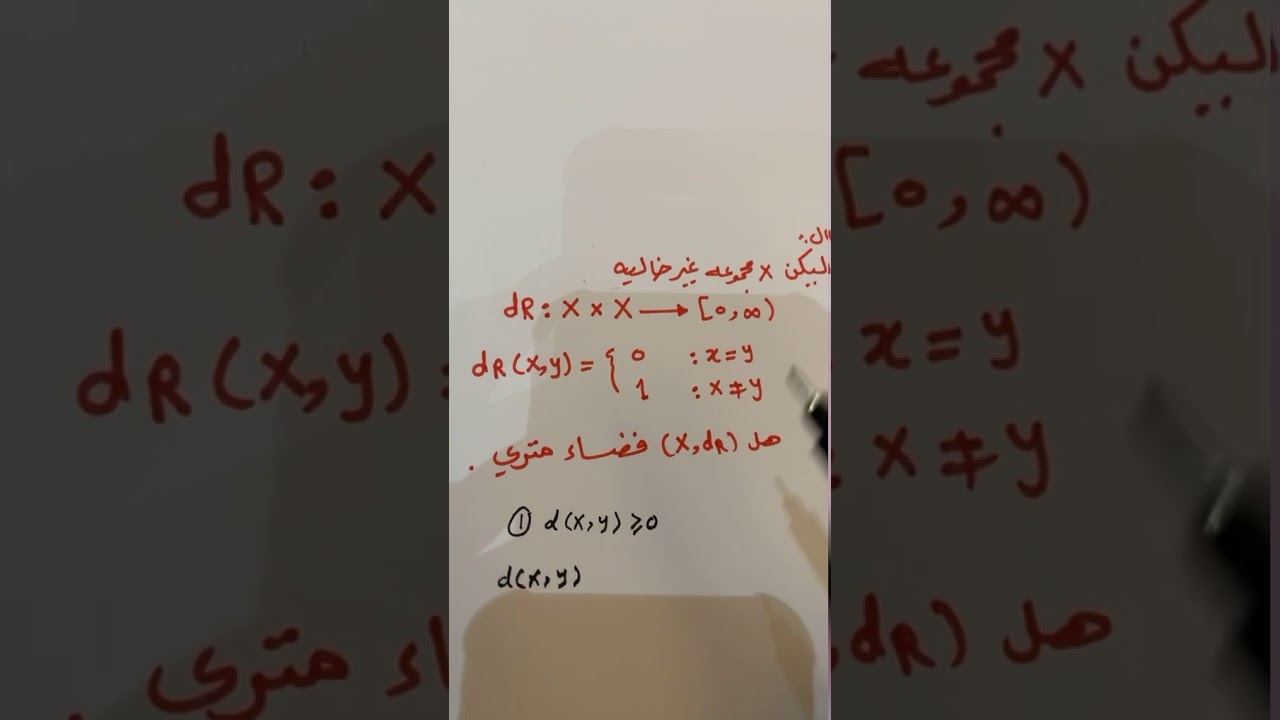 ليكن X مجموعه غير خاليه
dR : X × X → [0,∞)
dR(x,y) = { 0 : x=y
1 : x≠y
هل (X,dR) فضاء متري .
① d(x,y) ≥ 0
d(x,y)